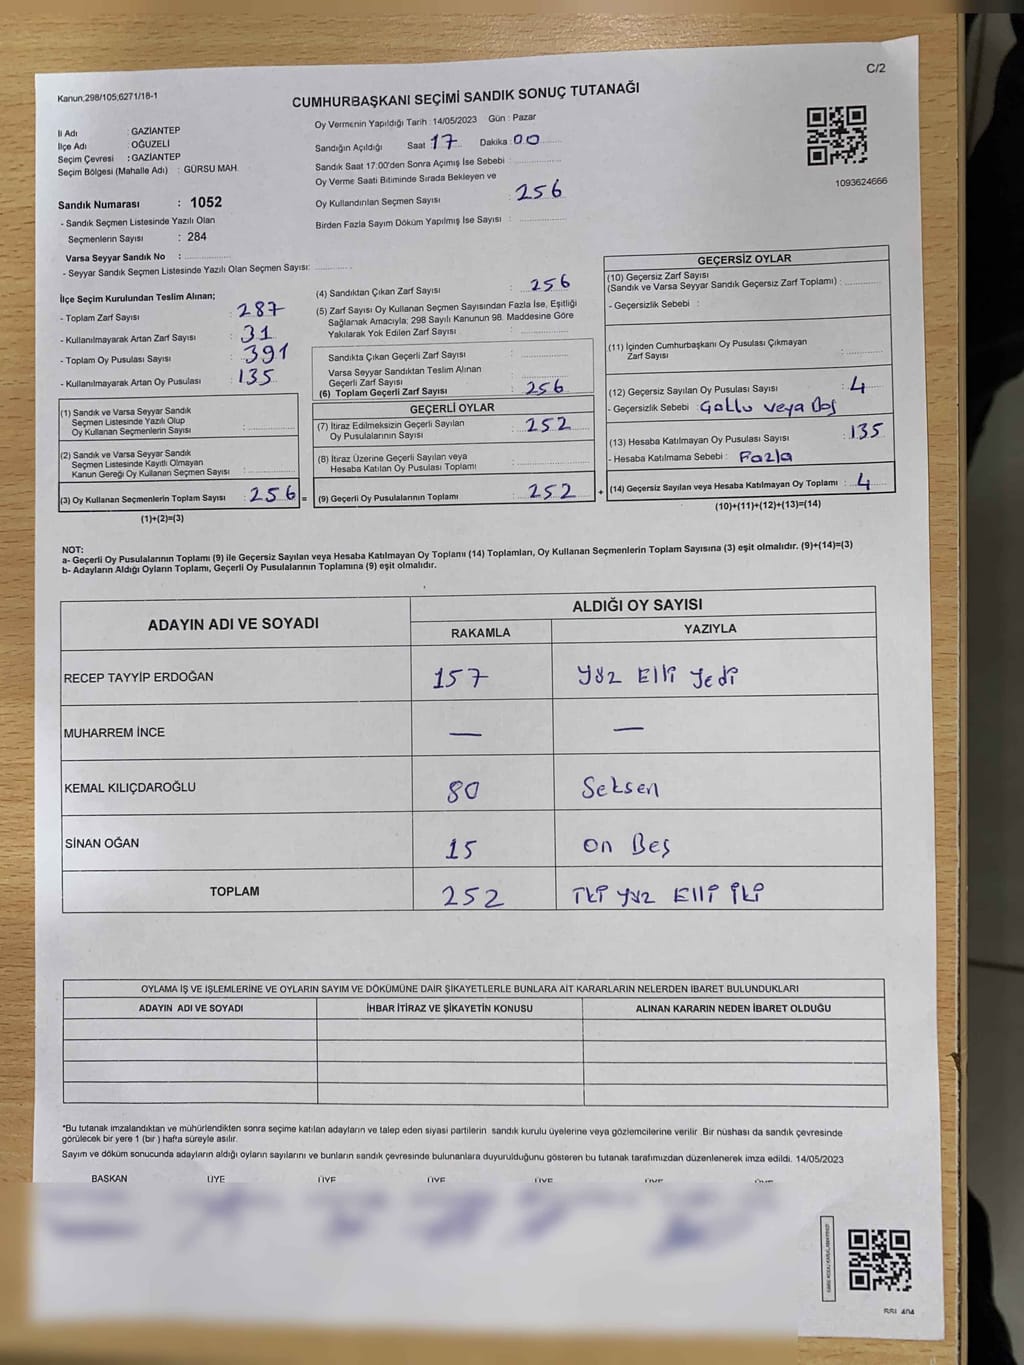 C/2
Kanun,298/105;6271/18-1
CUMHURBAŞKANI SEÇİMİ SANDIK SONUÇ TUTANAĞI
İl Adı : GAZİANTEP
İlçe Adı : OĞUZELİ
Seçim Çevresi : GAZİANTEP
Seçim Bölgesi (Mahalle Adı) : GÜRSU MAH.
Sandık Numarası : 1052
- Sandık Seçmen Listesinde Yazılı Olan
Seçmenlerin Sayısı : 284
Varsa Seyyar Sandık No :
- Seyyar Sandık Seçmen Listesinde Yazılı Olan Seçmen Sayısı:
Oy Vermenin Yapıldığı Tarih : 14/05/2023 Gün : Pazar
Sandığın Açıldığı Saat 17 Dakika 00
Sandık Saat 17:00'den Sonra Açımış İse Sebebi :
Oy Verme Saati Bitiminde Sırada Bekleyen ve
Oy Kullandırılan Seçmen Sayısı : 256
Birden Fazla Sayım Döküm Yapılmış İse Sayısı :
1093624666
İlçe Seçim Kurulundan Teslim Alınan;
- Toplam Zarf Sayısı : 287
- Kullanılmayarak Artan Zarf Sayısı : 31
- Toplam Oy Pusulası Sayısı : 391
- Kullanılmayarak Artan Oy Pusulası : 135
(1) Sandık ve Varsa Seyyar Sandık
Seçmen Listesinde Yazılı Olup
Oy Kullanan Seçmenlerin Sayısı :
(2) Sandık ve Varsa Seyyar Sandık
Seçmen Listesinde Kayıtlı Olmayan
Kanun Gereği Oy Kullanan Seçmen Sayısı :
(3) Oy Kullanan Seçmenlerin Toplam Sayısı : 256 =
(1)+(2)=(3)
(4) Sandıktan Çıkan Zarf Sayısı : 256
(5) Zarf Sayısı Oy Kullanan Seçmen Sayısından Fazla İse, Eşitliği
Sağlamak Amacıyla; 298 Sayılı Kanunun 98. Maddesine Göre
Yakılarak Yok Edilen Zarf Sayısı :
Sandıkta Çıkan Geçerli Zarf Sayısı :
Varsa Seyyar Sandıktan Teslim Alınan
Geçerli Zarf Sayısı :
(6) Toplam Geçerli Zarf Sayısı : 256
GEÇERLİ OYLAR
(7) İtiraz Edilmeksizin Geçerli Sayılan
Oy Pusulalarının Sayısı : 252
(8) İtiraz Üzerine Geçerli Sayılan veya
Hesaba Katılan Oy Pusulası Toplamı :
(9) Geçerli Oy Pusulalarının Toplamı : 252 +
GEÇERSİZ OYLAR
(10) Geçersiz Zarf Sayısı
(Sandık ve Varsa Seyyar Sandık Geçersiz Zarf Toplamı) :
- Geçersizlik Sebebi :
(11) İçinden Cumhurbaşkanı Oy Pusulası Çıkmayan
Zarf Sayısı :
(12) Geçersiz Sayılan Oy Pusulası Sayısı : 4
- Geçersizlik Sebebi : Gollu veya Boş
(13) Hesaba Katılmayan Oy Pusulası Sayısı : 135
- Hesaba Katılmama Sebebi : Fazla
(14) Geçersiz Sayılan veya Hesaba Katılmayan Oy Toplamı : 4
(10)+(11)+(12)+(13)=(14)
NOT:
a- Geçerli Oy Pusulalarının Toplamı (9) ile Geçersiz Sayılan veya Hesaba Katılmayan Oy Toplamı (14) Toplamları, Oy Kullanan Seçmenlerin Toplam Sayısına (3) eşit olmalıdır. (9)+(14)=(3)
b- Adayların Aldığı Oyların Toplamı, Geçerli Oy Pusulalarının Toplamına (9) eşit olmalıdır.
ADAYIN ADI VE SOYADI ALDIĞI OY SAYISI
RAKAMLA YAZIYLA
RECEP TAYYİP ERDOĞAN 157 Yüz Elli Yedi
MUHARREM İNCE — —
KEMAL KILIÇDAROĞLU 80 Seksen
SİNAN OĞAN 15 on Beş
TOPLAM 252 İki yüz Elli İki
OYLAMA İŞ VE İŞLEMLERİNE VE OYLARIN SAYIM VE DÖKÜMÜNE DAİR ŞİKAYETLERLE BUNLARA AİT KARARLARIN NELERDEN İBARET BULUNDUKLARI
ADAYIN ADI VE SOYADI İHBAR İTİRAZ VE ŞİKAYETİN KONUSU ALINAN KARARIN NEDEN İBARET OLDUĞU
*Bu tutanak imzalandıktan ve mühürlendikten sonra seçime katılan adayların ve talep eden siyasi partilerin sandık kurulu üyelerine veya gözlemcilerine verilir. Bir nüshası da sandık çevresinde
görülecek bir yere 1 (bir) hafta süreyle asılır.
Sayım ve döküm sonucunda adayların aldığı oyların sayılarını ve bunların sandık çevresinde bulunanlara duyurulduğunu gösteren bu tutanak tarafımızdan düzenlenerek imza edildi. 14/05/2023
BAŞKAN ÜYE ÜYE ÜYE ÜYE ÜYE ÜYE